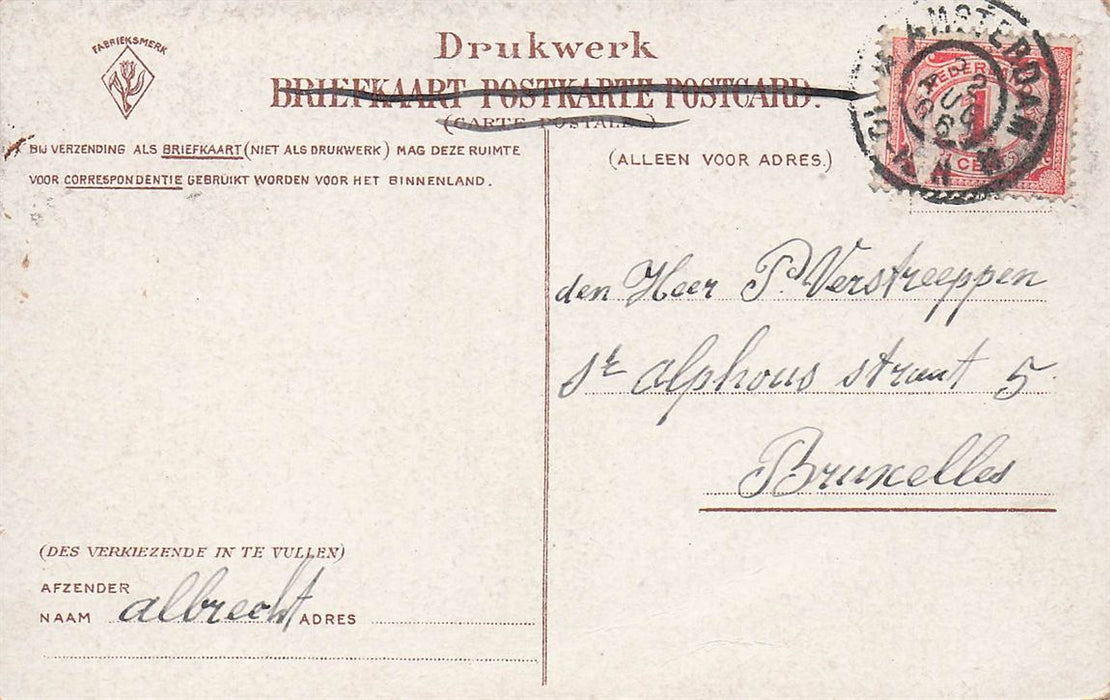 FABRIEKSMERK
Drukwerk
BRIEFKAART POSTKARTE POSTCARD.
(CARTE POSTALE)
BIJ VERZENDING ALS BRIEFKAART (NIET ALS DRUKWERK) MAG DEZE RUIMTE
VOOR CORRESPONDENTIE GEBRUIKT WORDEN VOOR HET BINNENLAND.
(ALLEEN VOOR ADRES.)
AMSTERDAM
1
CENT
den Heer P. Verstreeppen
St Alphous straat 5
Bruxelles
(DES VERKIEZENDE IN TE VULLEN)
AFZENDER
NAAM Albrecht ADRES